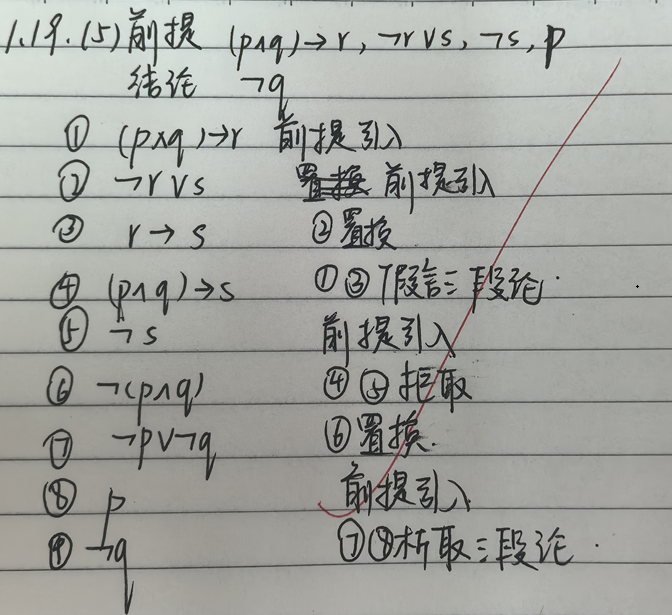 1.19.(5)前提 (p∧q)→r, ¬r∨s, ¬s, p
结论 ¬q
① (p∧q)→r 前提引入
② ¬r∨s 置换 前提引入
③ r→s ②置换
④ (p∧q)→s ①③假言三段论.
⑤ ¬s 前提引入
⑥ ¬(p∧q) ④⑤拒取
⑦ ¬p∨¬q ⑥置换.
⑧ p 前提引入
⑨ ¬q ⑦⑧析取三段论.